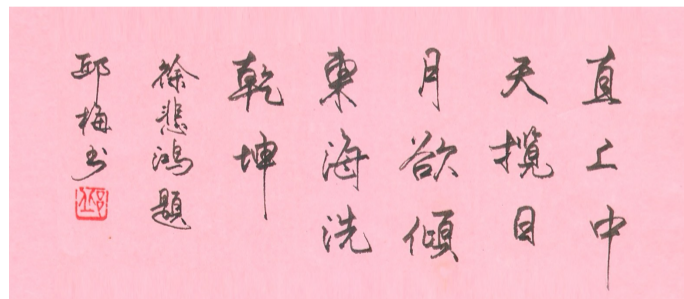 直上中
天攬日
月欲傾
東海洗
乾坤
徐悲鴻題
邱梅書